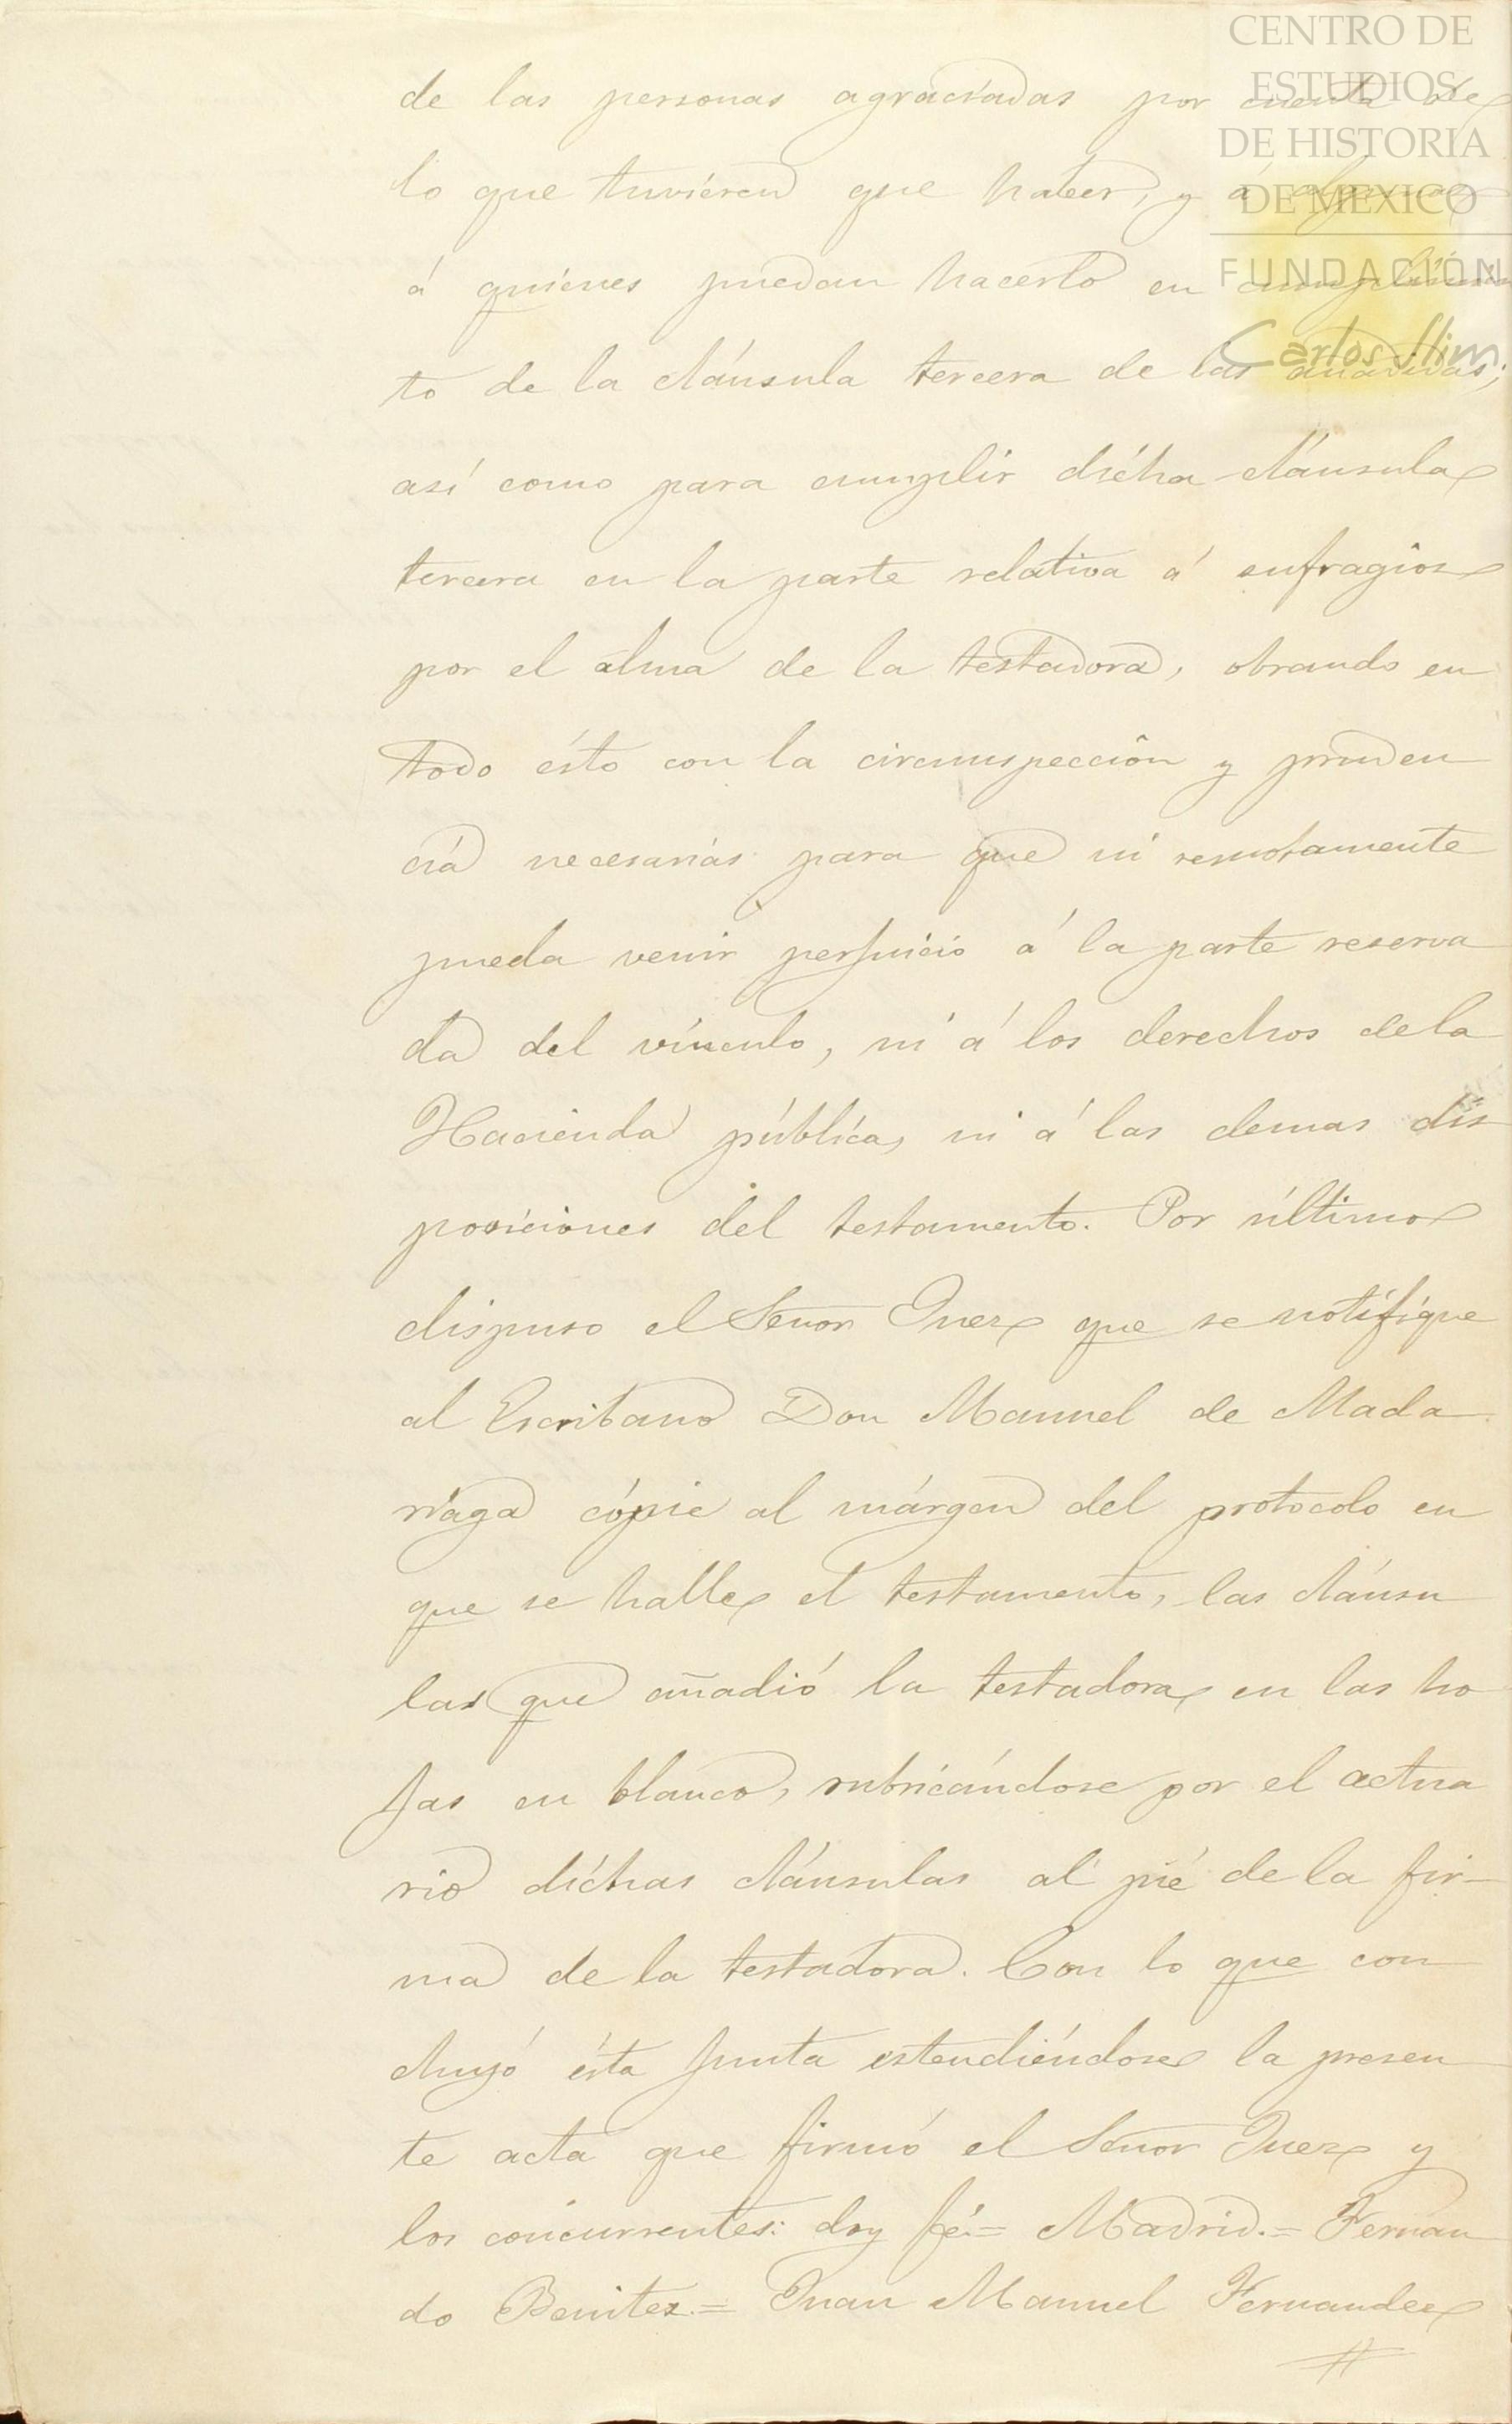 CENTRO DE
ESTUDIOS
DE HISTORIA
DE MEXICO
FUNDACIÓN
Carlos Slim
de las personas agraciadas por cuenta de
lo que tuvieren que haber, y á algunas
á quienes puedan hacerlo en cumplimien
to de la cláusula tercera de las añadidas;
así como para cumplir dicha cláusula
tercera en la parte relativa á sufragios
por el alma de la testadora, obrando en
todo ésto con la circunspección y pruden
cia necesarias para que ni remotamente
pueda venir perjuicio á la parte reserva
da del vínculo, ni á los derechos de la
Hacienda pública, ni á las demas dis
posiciones del testamento. Por último
dispuso el Señor Juez que se notifique
al Escribano Don Manuel de Mada
riaga cópie al márgen del protocolo en
que se halle el testamento, las cláusu
las que añadió la testadora en las ho
jas en blanco, rubricándose por el actua
rio dichas cláusulas al pié de la fir-
ma de la testadora. Con lo que con
cluyó ésta junta estendiéndose la presen
te acta que firmó el Señor Juez y
los concurrentes: doy fé.= Madrid.= Fernan
do Benitez.= Juan Manuel Fernandez